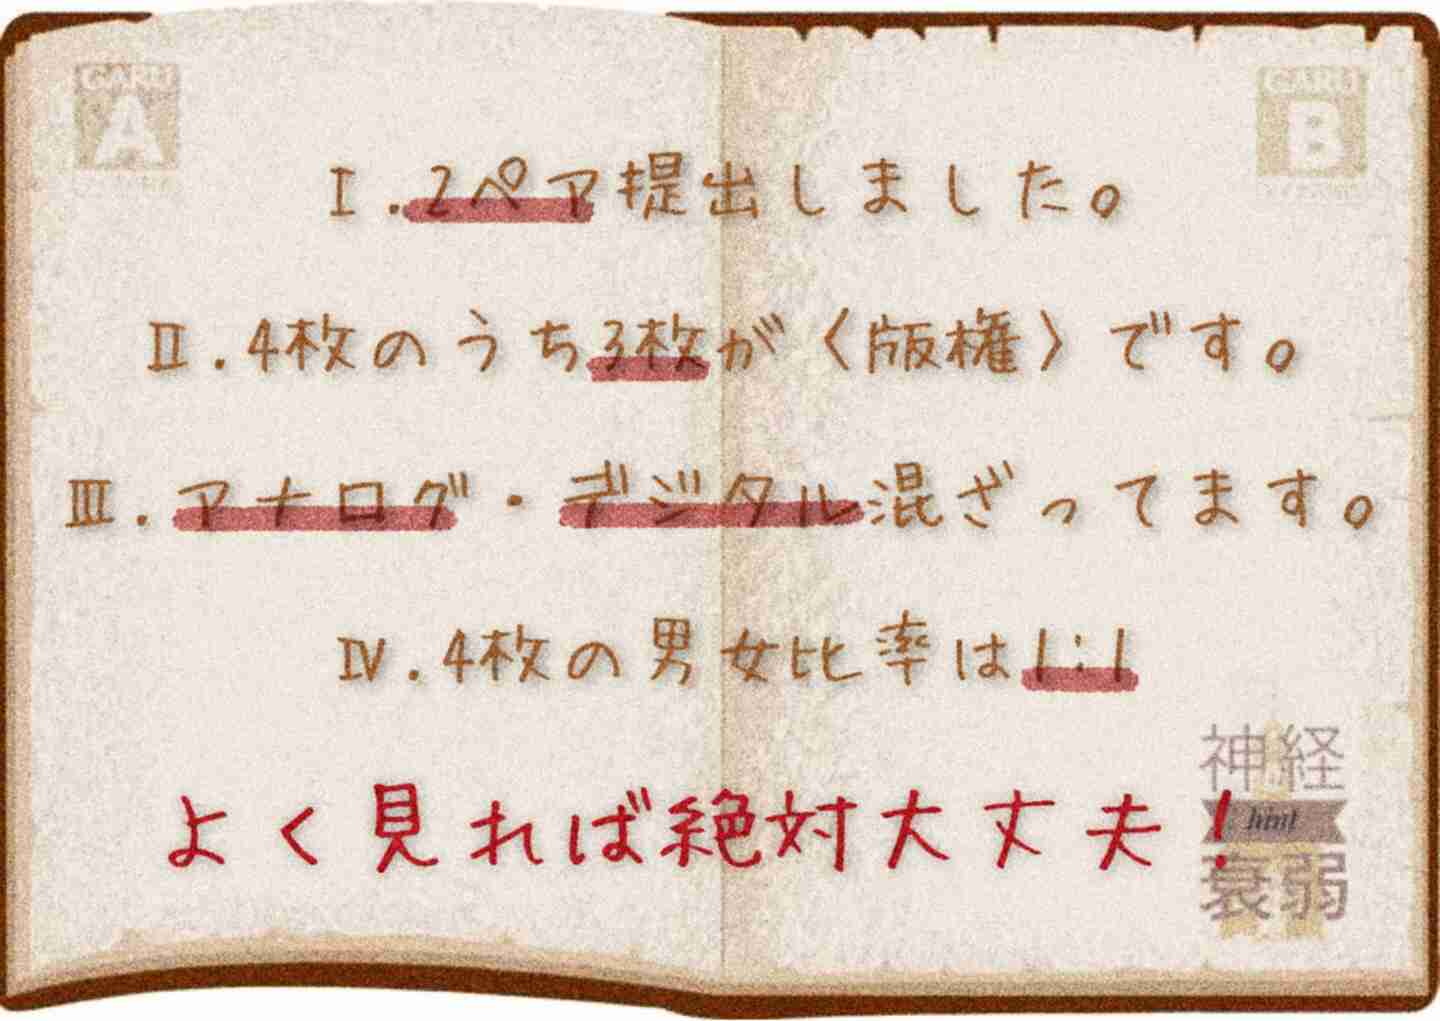 GARU
A
GARU
B
Ⅰ.2ペア提出しました。
Ⅱ.4枚のうち3枚が〈版権〉です。
Ⅲ.アナログ・デジタル混ざってます。
Ⅳ.4枚の男女比率は1:1
よく見れば絶対大丈夫!
神経
hint
衰弱